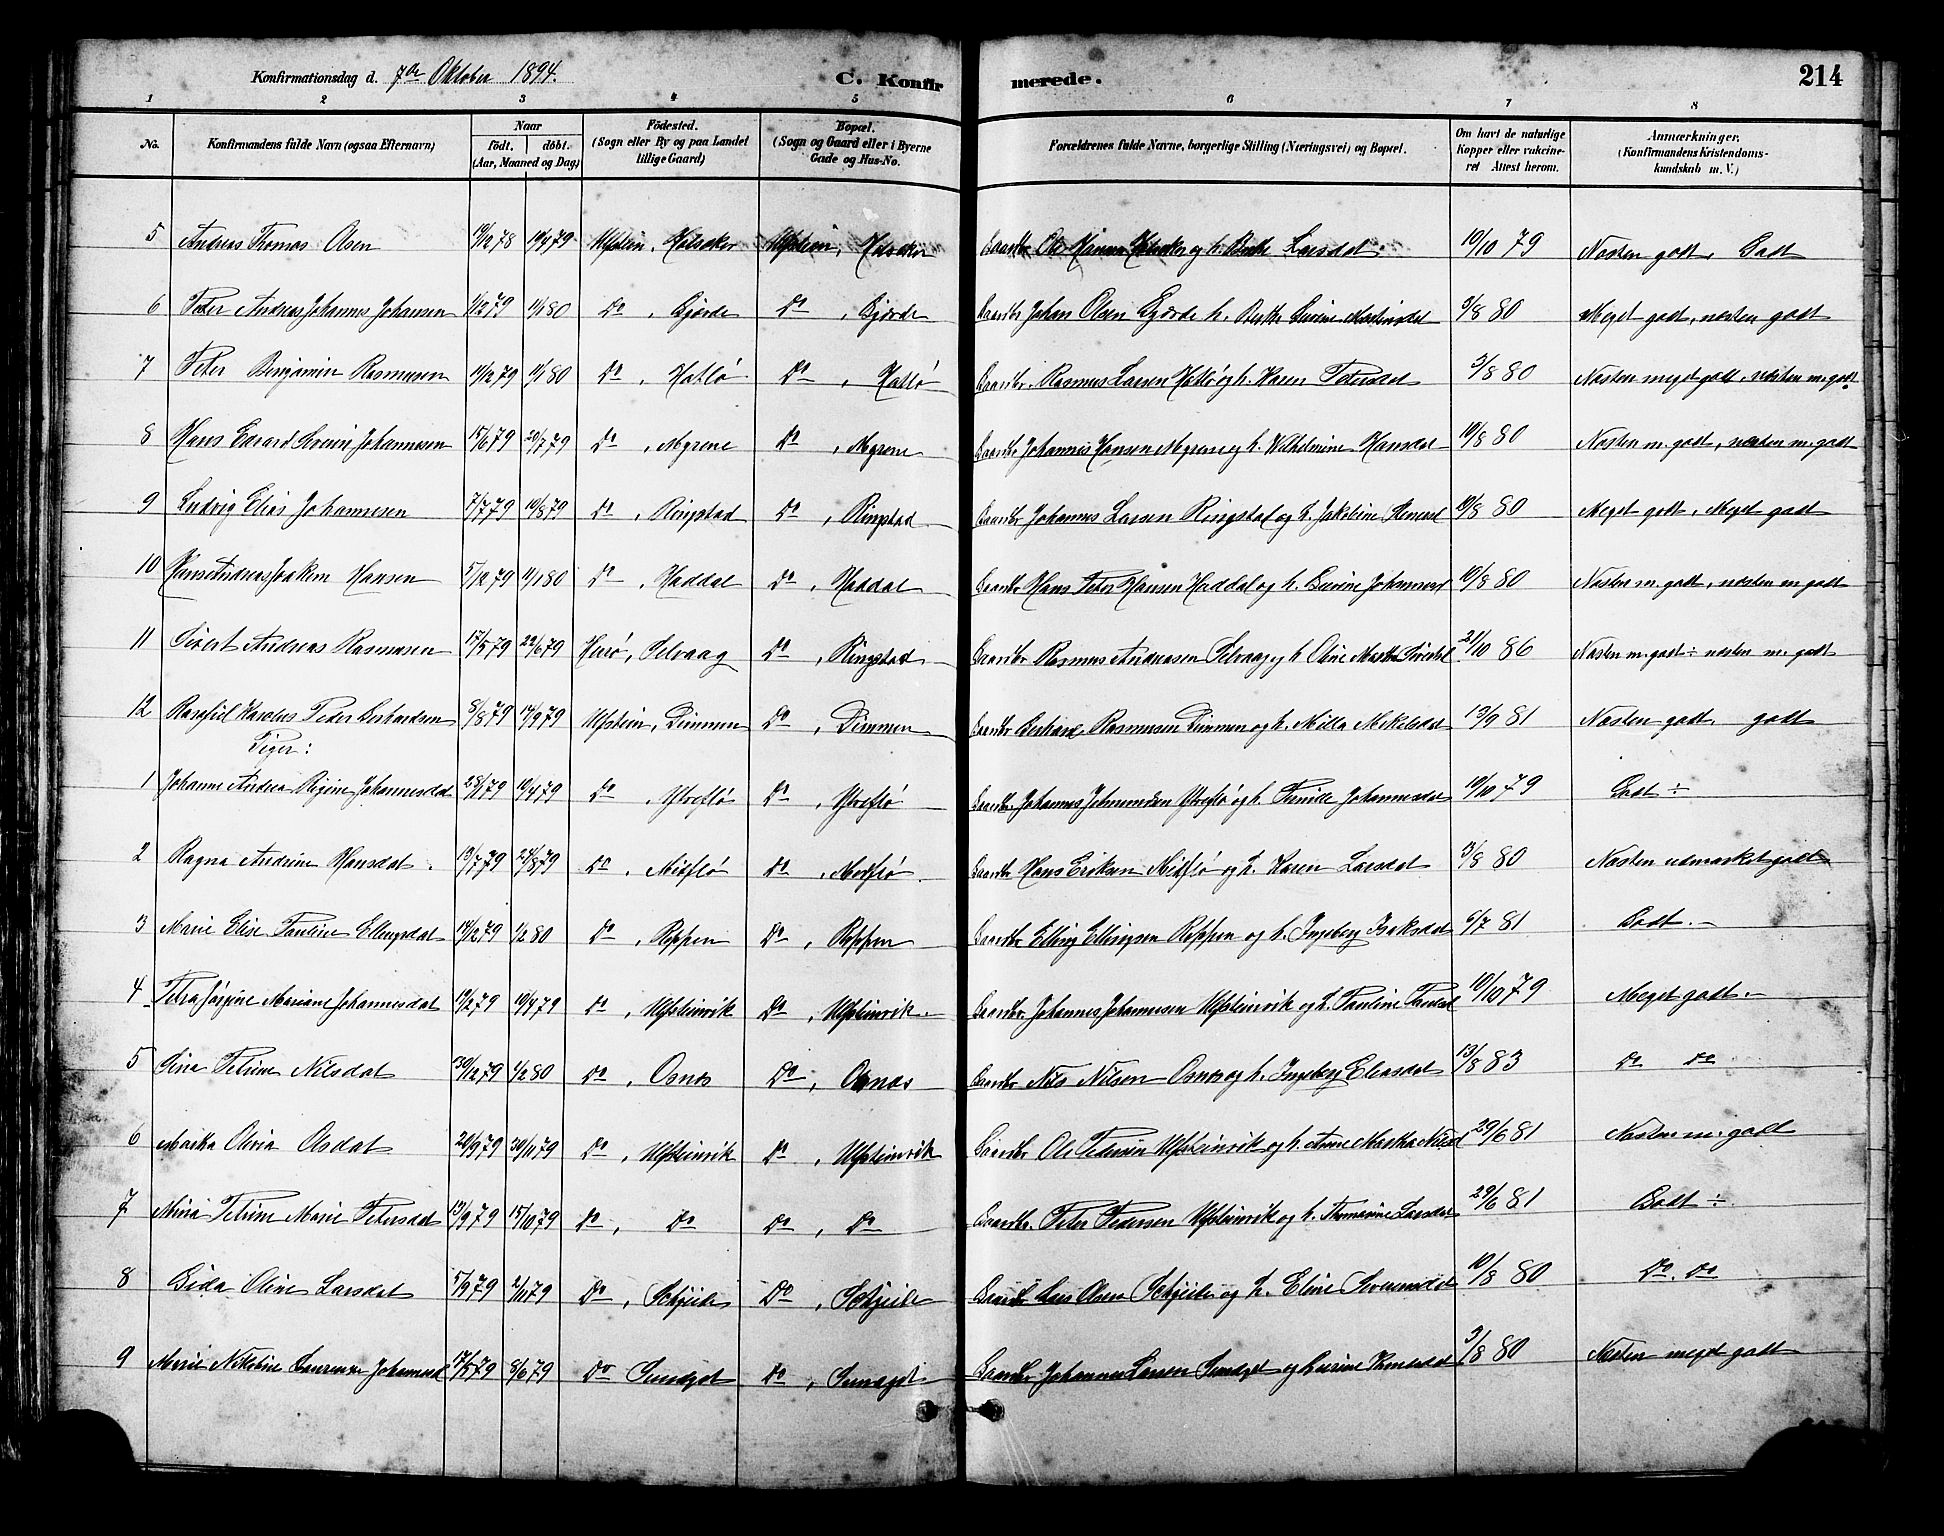 Konfirmationsdag d. 7de Oktober 1894. C. Konfirmerede. 214
1 2 3 4 5 6 7 8
No. Konfirmandens fulde Navn (ogsaa Efternavn) Naar födt. döbt. (Aar, Maaned og Dag) Födested. (Sogn eller By og paa Landet tillige Gaard) Bopæl. (Sogn og Gaard eller i Byerne Gade og Hus-No. Forældrenes fulde Navne, borgerlige Stilling (Næringsvei) og Bopæl. Om havt de naturlige Kopper eller vakcineret Attest herom. Anmærkninger. (Konfirmandens Kristendomskundskab m. V.)
5 Andreas Thomas Olsen Ulfstein, Ulfstein, Gaardbr. Ole og h. Berthe Larsdat 10/10 79 Næsten godt, Godt
6 Peter Andreas Johannes Johansen 11/1 80 Do, Gjørde Do, Gjørde Gaardbr Johan Olsen Gjørde h. Berthe Martinsdat 3/8 80 Meget godt, næsten godt
7 Peter Benjamin Rasmusen 11/12 79 11/1 80 Do, Hatlø Do, Hatlø Gaardbr. Rasmus Larsen Hatlø og h. Karen Petersdat 3/8 80 Næsten meget godt, næsten m. godt
8 Hans Edvard Severin Johannesen 15/6 79 20/7 79 Do, Myrene Do, Myrene Gaardbr Johannes Hansen Myrene og h. Vilhelmine Hansdat 10/8 80 Næsten m. godt, næsten m. godt
9 Ludvig Elias Johannesen 7/7 79 10/8 79 Do, Ringstad Do, Ringstad Gaardbr Johannes Larsen Ringstad og h. Jakobine 10/8 80 Meget godt, Meget godt
10 Hans Andreas Joakim Hansen 5/12 79 11/1 80 Do, Haddal Do, Haddal Gaardbr Hans Peter Hansen Haddal og h. Severine Johannesd 10/8 80 Næsten m. godt, næsten m. godt
11 Sivert Andreas Rasmusen 17/5 79 22/6 79 Herø, Selvaag Do, Ringstad Gaardbr Rasmus Andreasen Selvaag og h. Oline Martha Sivertsd 21/10 86 Næsten m. godt ÷ næsten m. godt
12 Karolus Peder Berhardsen 8/8 79 14/9 79 Ulfstein, Dimmen Do, Dimmen Gaardbr Berhard Rasmusen Dimmen og h. Milla Mikelsdat 13/9 81 Næsten godt. godt
Piger:
1 Johanne Andrea Regine Johannesdat 28/1 79 10/4 79 Do, Ytreflø Do, Ytreflø Gaardbr. Johannes Ytreflø og h. Johannesdat 10/10 79 Godt ÷
2 Ragna Andrine Hansdat 13/7 79 24/8 79 Do, Midflø Do, Midflø Gaardbr Hans Eriksen Midflø og h. Karen Larsdat 3/8 80 Næsten udmærket godt
3 Marie Elise Pauline Ellingsdat 14/12 79 1/2 80 Do, Røppen Do, Røppen Gaardbr Elling Ellingsen Røppen og h. Ingeborg Isaksdat 6/7 81 Godt. –
4 Petra Jørgine Mariane Johannesdat 19/2 79 10/4 79 Do, Ulfsteinvik Do, Ulfsteinvik Gaardbr. Johannes Johannesen Ulfsteinvik og h. Pauline 10/10 79 Meget godt. –
5 Sina Petrine Nilsdat 30/12 79 1/2 80 Do, Osnes Do, Osnes Gaardbr Nils Nilsen Osnes og h. Ingeborg Eliasdat 13/8 83 Do Do
6 Martha Olivia Olsdat 20/9 79 30/11 79 Do, Ulfsteinvik Do, Ulfsteinvik Gaardbr Ole Pedersen Ulfsteinvik og h. Anne Martha Nilsd 29/6 81 Næsten m. godt
7 Mina Petrine Marie Petersdat 13/9 79 15/10 79 Do, Do Do, Do Gaardbr. Peter Pedersen Ulfsteinvik og h. Thomasine Larsdat 29/6 81 Godt ÷
8 Gida Oline Larsdat 5/9 79 2/11 79 Do, Skeide Do, Skeide Gaardbr Lars Olsen Skeide og h. Eline 10/8 80 Do. Do
9 Marie Nikoline Laurense Johannesd 17/5 79 8/6 79 Do Sundgot Do, Sundgot Gaardbr Johannes Larsen Sundgot og 3/8 80 Næsten meget godt